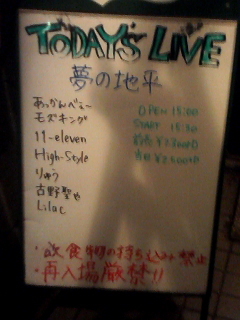 TODAY'S LIVE
夢の地平
あっかんべぇー
モズキング
11-eleven
High-Style
りゅう
古野聖也
Lilac
OPEN 15:00
START 15:30
前売 ¥
当日 ¥
・飲食物の持ち込み禁止
・再入場厳禁!!